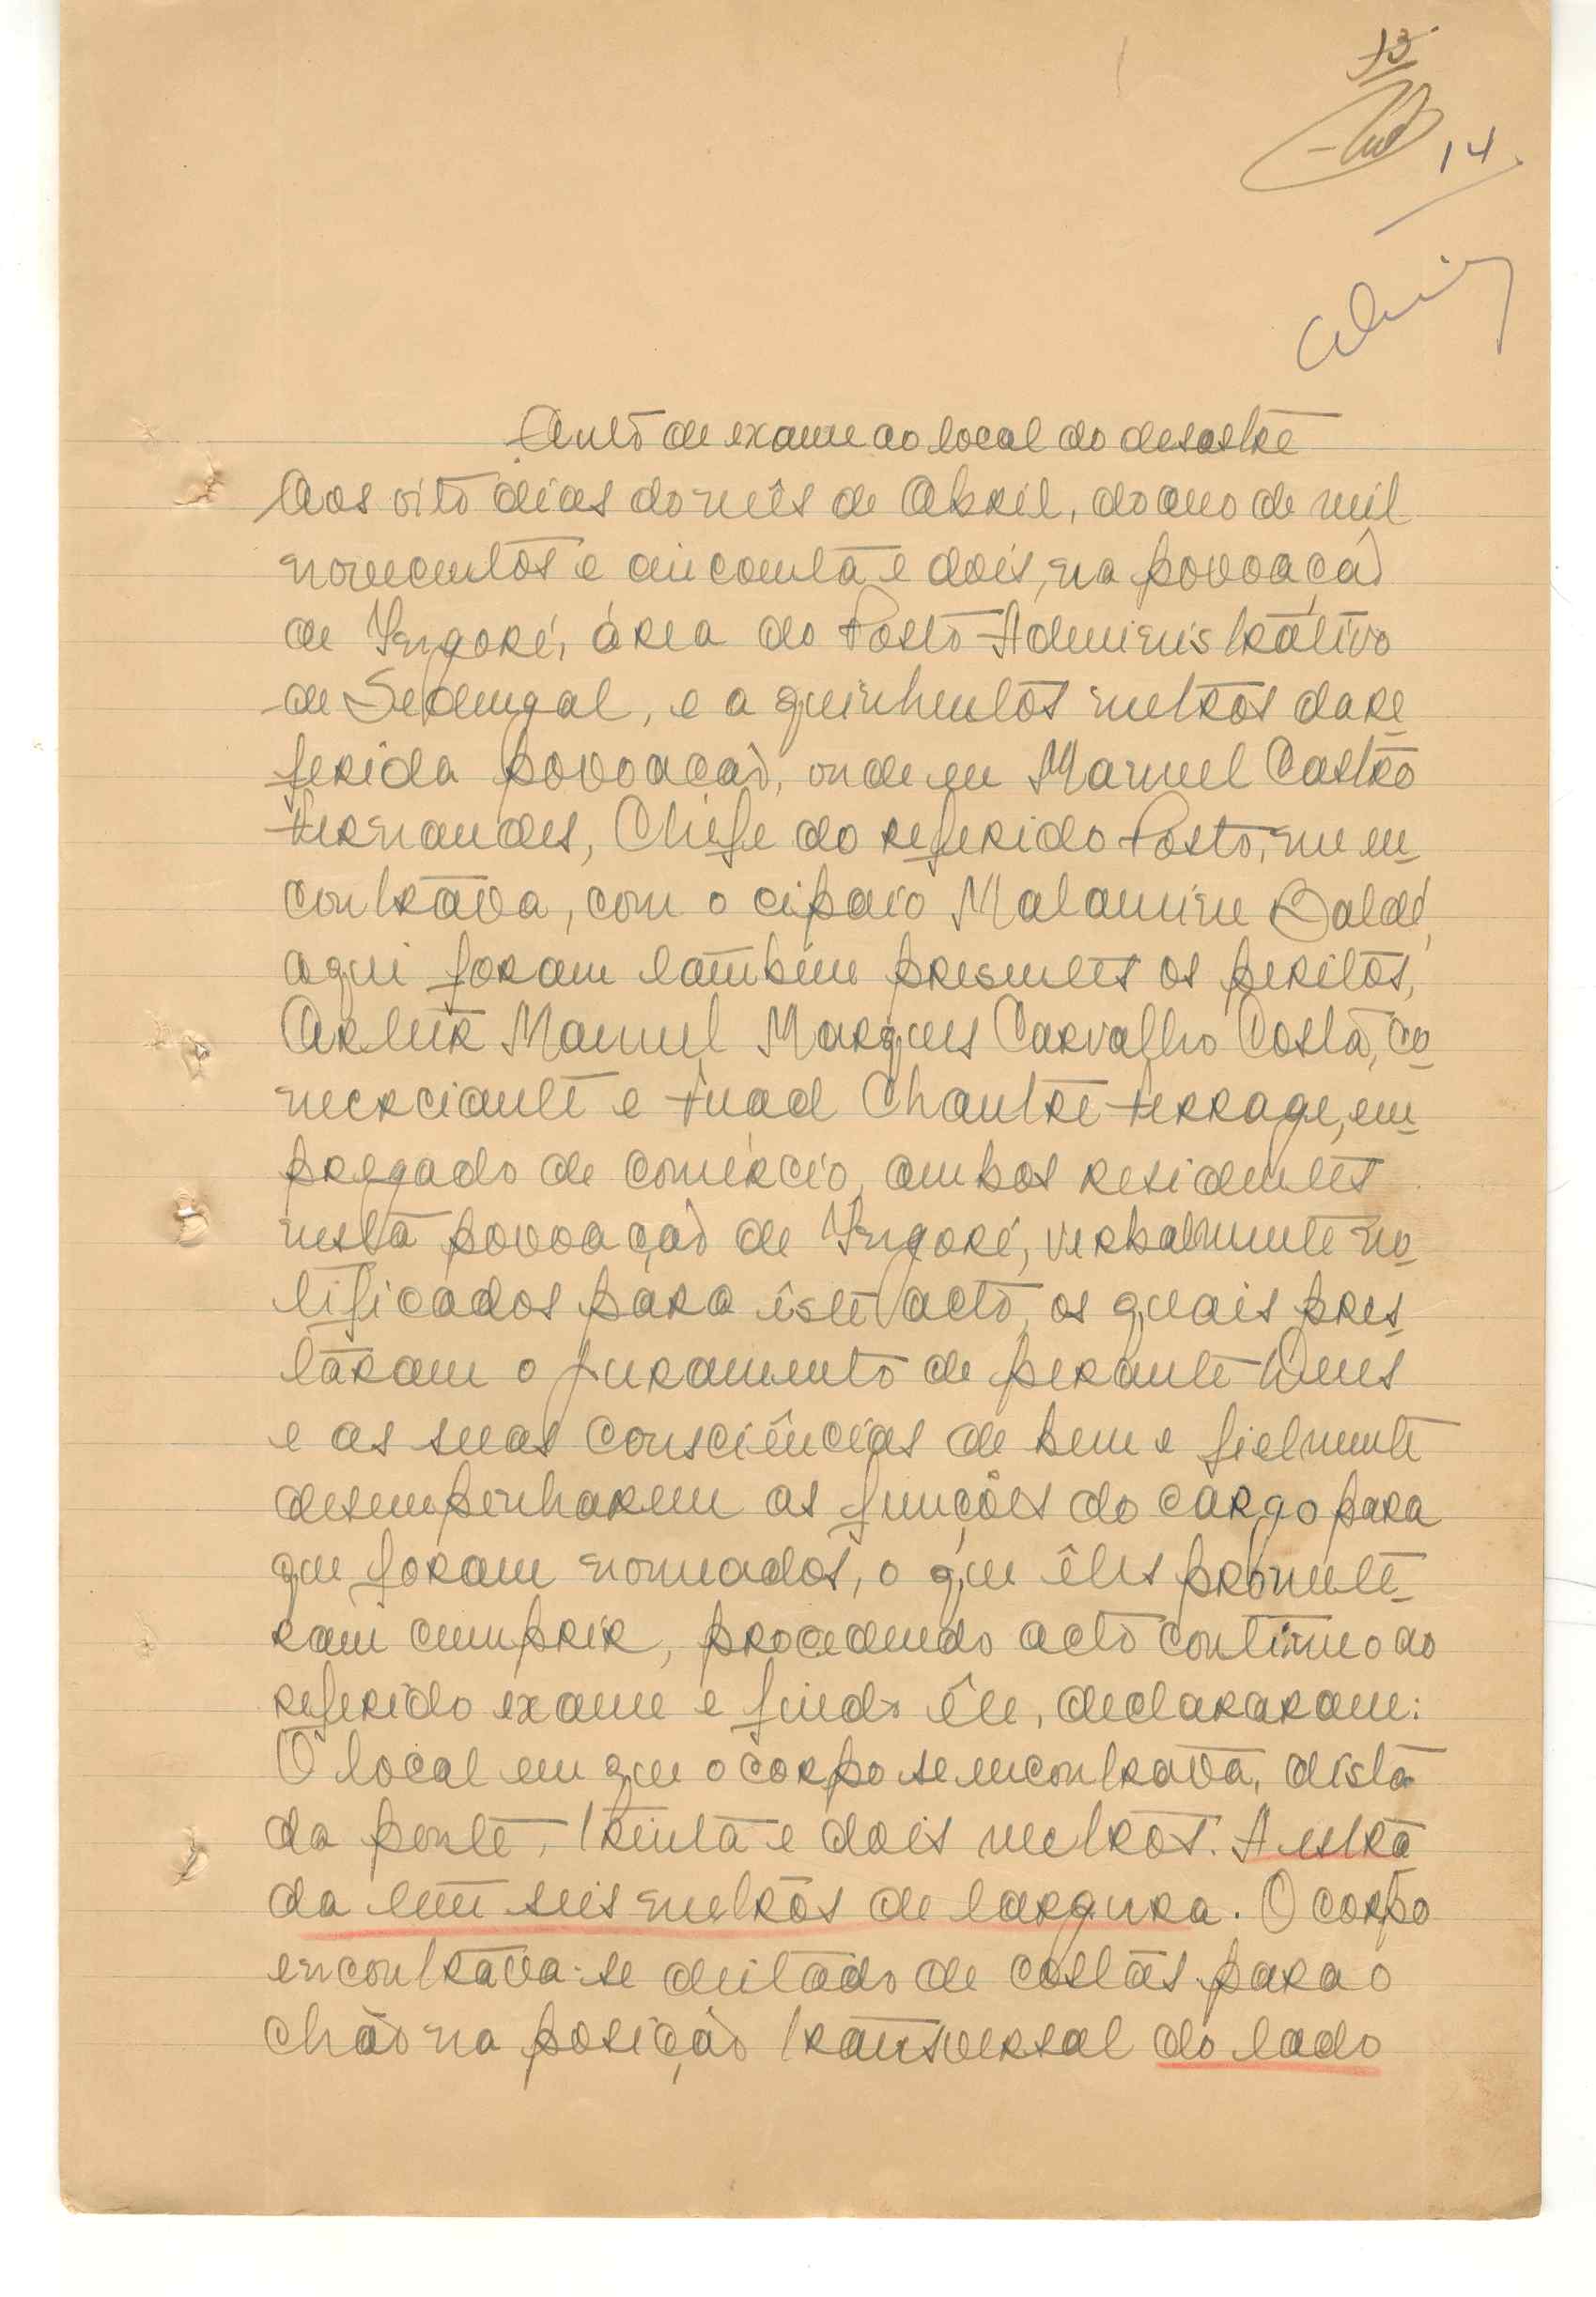 13
14
Auto de exame ao local do desastre
Aos oito dias do mês de Abril, do ano de mil
novecentos e cincoenta e dois, na povoação
de Ingoré, área do Posto Administrativo
de Sedengal, e a quinhentos metros da re-
ferida povoação, onde eu Manuel Castro
Fernandes, Chefe do referido Posto, me en-
contrava, com o cipaio Malamine Baldé,
aqui foram também presentes os peritos,
Artur Manuel Marques Carvalho Costa, co-
merciante e Fuad Chantre Ferrage, em-
pregado de comércio, ambos residentes
nesta povoação de Ingoré, verbalmente no-
tificados para êste acto, os quais pres-
taram o juramento de perante Deus
e as suas consciências de bem e fielmente
desempenharem as funções do cargo para
que foram nomeados, o que êles promete-
ram cumprir, procedendo acto contínuo ao
referido exame e findo êle, declararam:
O local em que o corpo se encontrava, dista
da ponte, trinta e dois metros. A estra
da tem seis metros de largura. O corpo
encontrava-se deitado de costas para o
chão na posição transversal do lado